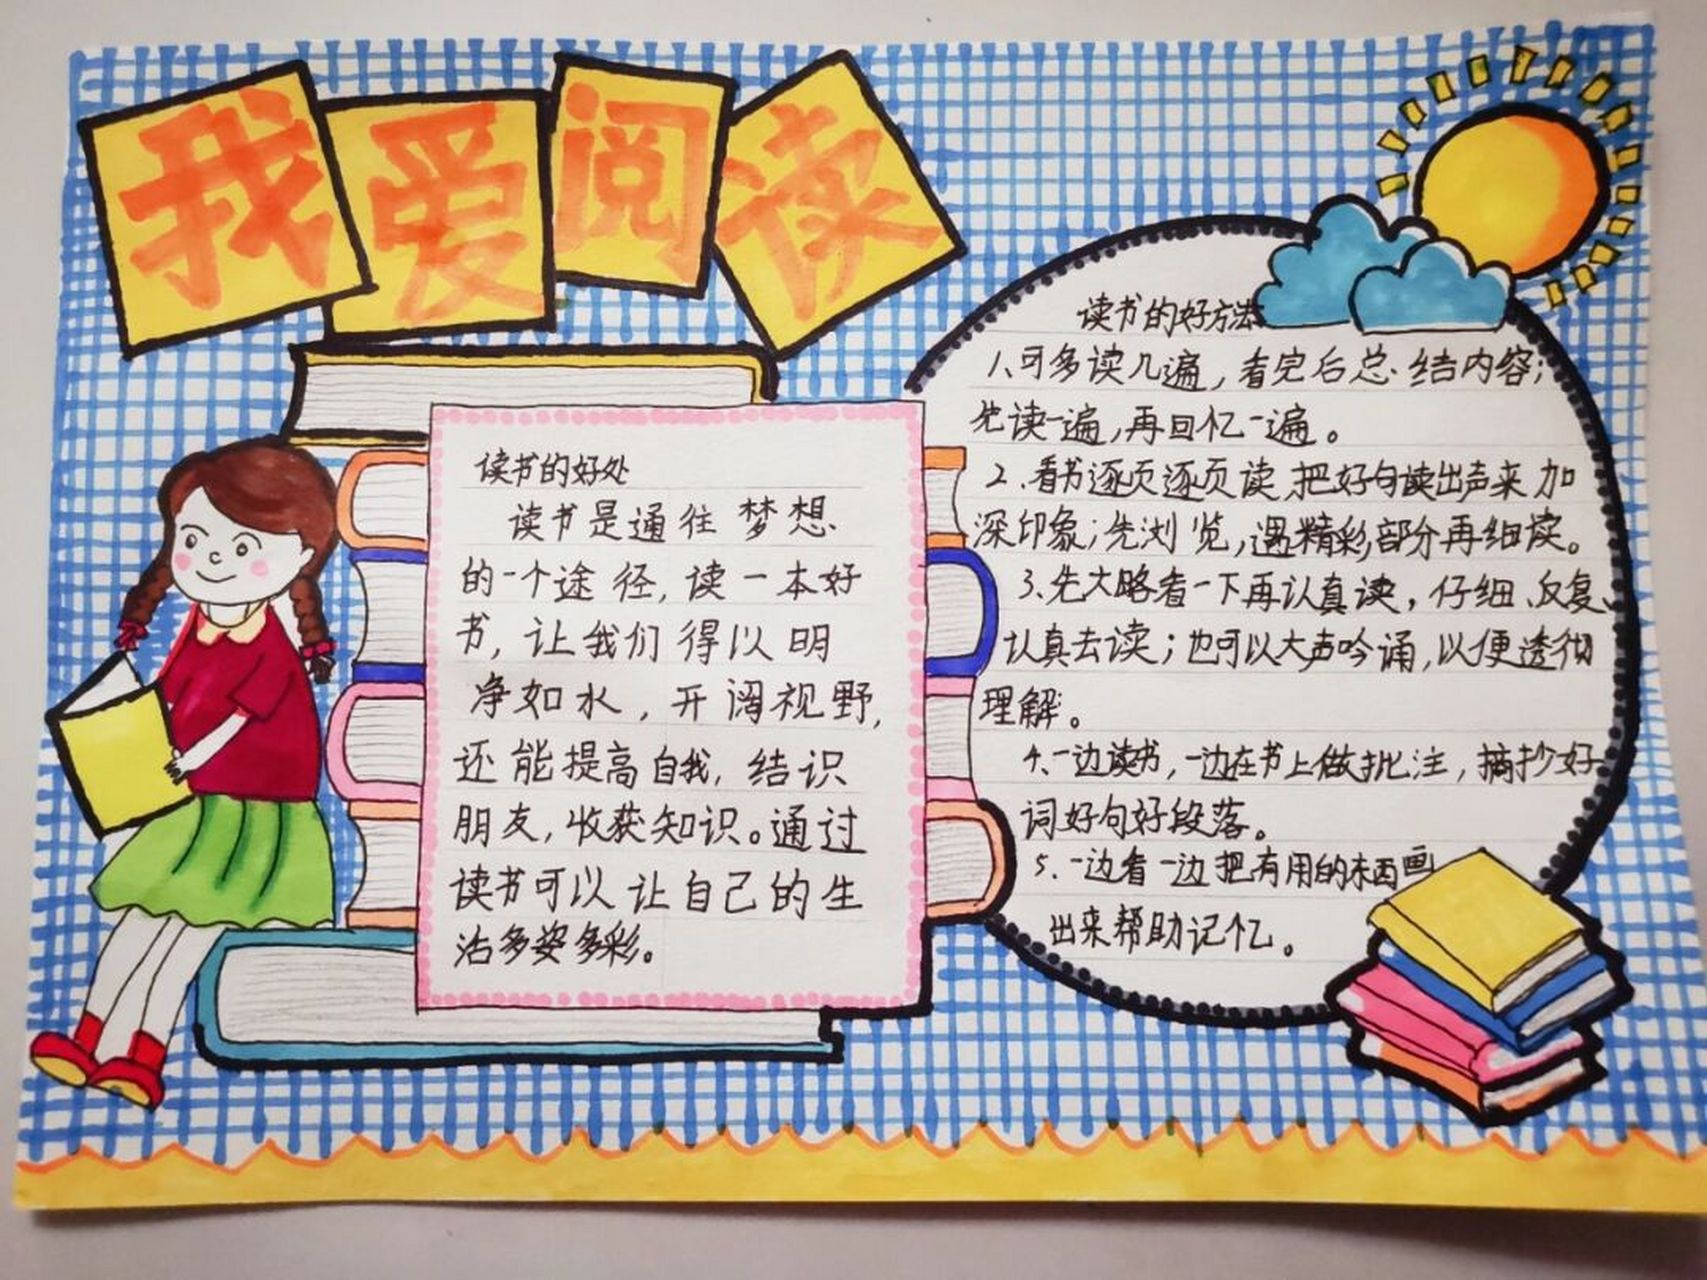 我爱阅读
读书的好处
读书是通往梦想
的一个途径,读一本好
书,让我们得以明
净如水,开阔视野,
还能提高自我,结识
朋友,收获知识。通过
读书可以让自己的生
活多姿多彩。
读书的好方法
1、可多读几遍,看完后总结内容;
先读一遍,再回忆一遍。
2、看书逐页逐页读,把好句读出声来加
深印象;先浏览,遇精彩部分再细读。
3、先大略看一下再认真读,仔细、反复、
认真去读;也可以大声吟诵,以便透彻
理解。
4、一边读书,一边在书上做批注,摘抄好
词好句好段落。
5、一边看一边把有用的东西画
出来帮助记忆。